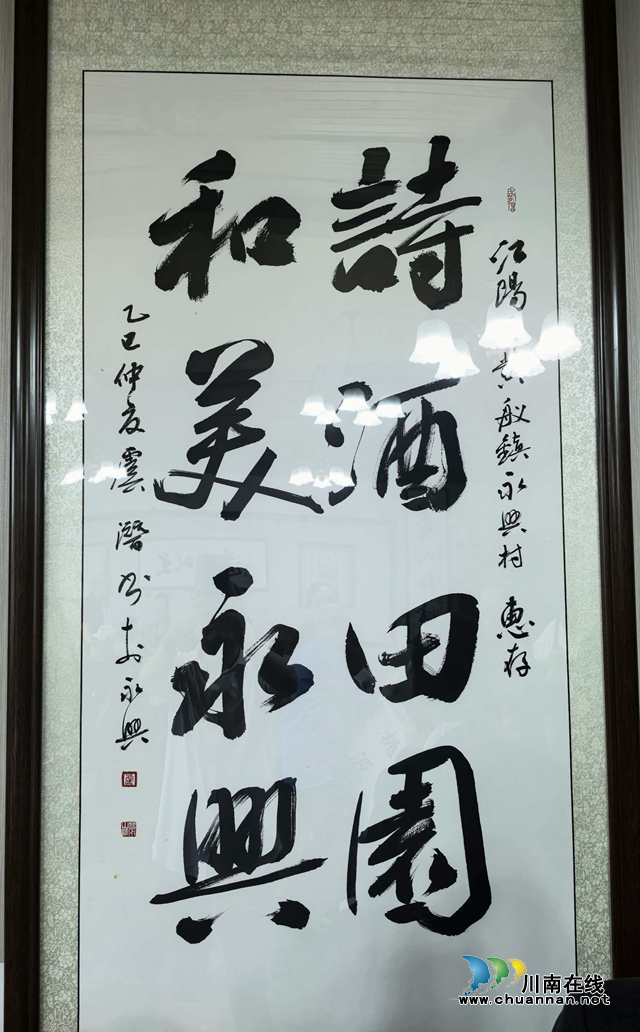 江陽 黄舣鎮永興村 惠存
詩酒田園
和美永興
乙巳仲夏雲潛书於永興
川南在线
www.chuannan.net